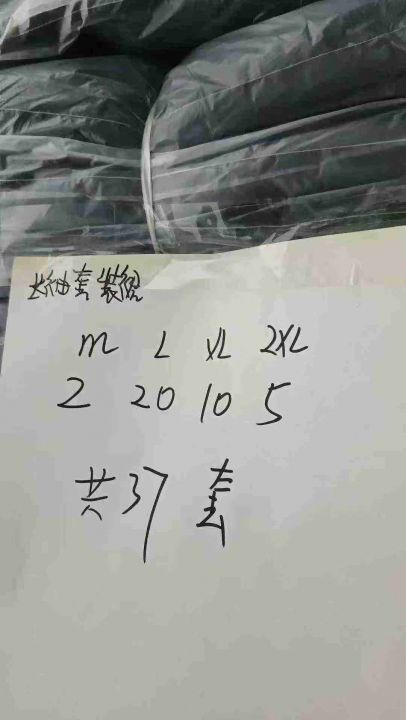 长袖套装
M L XL 2XL
2 20 10 5
共37套